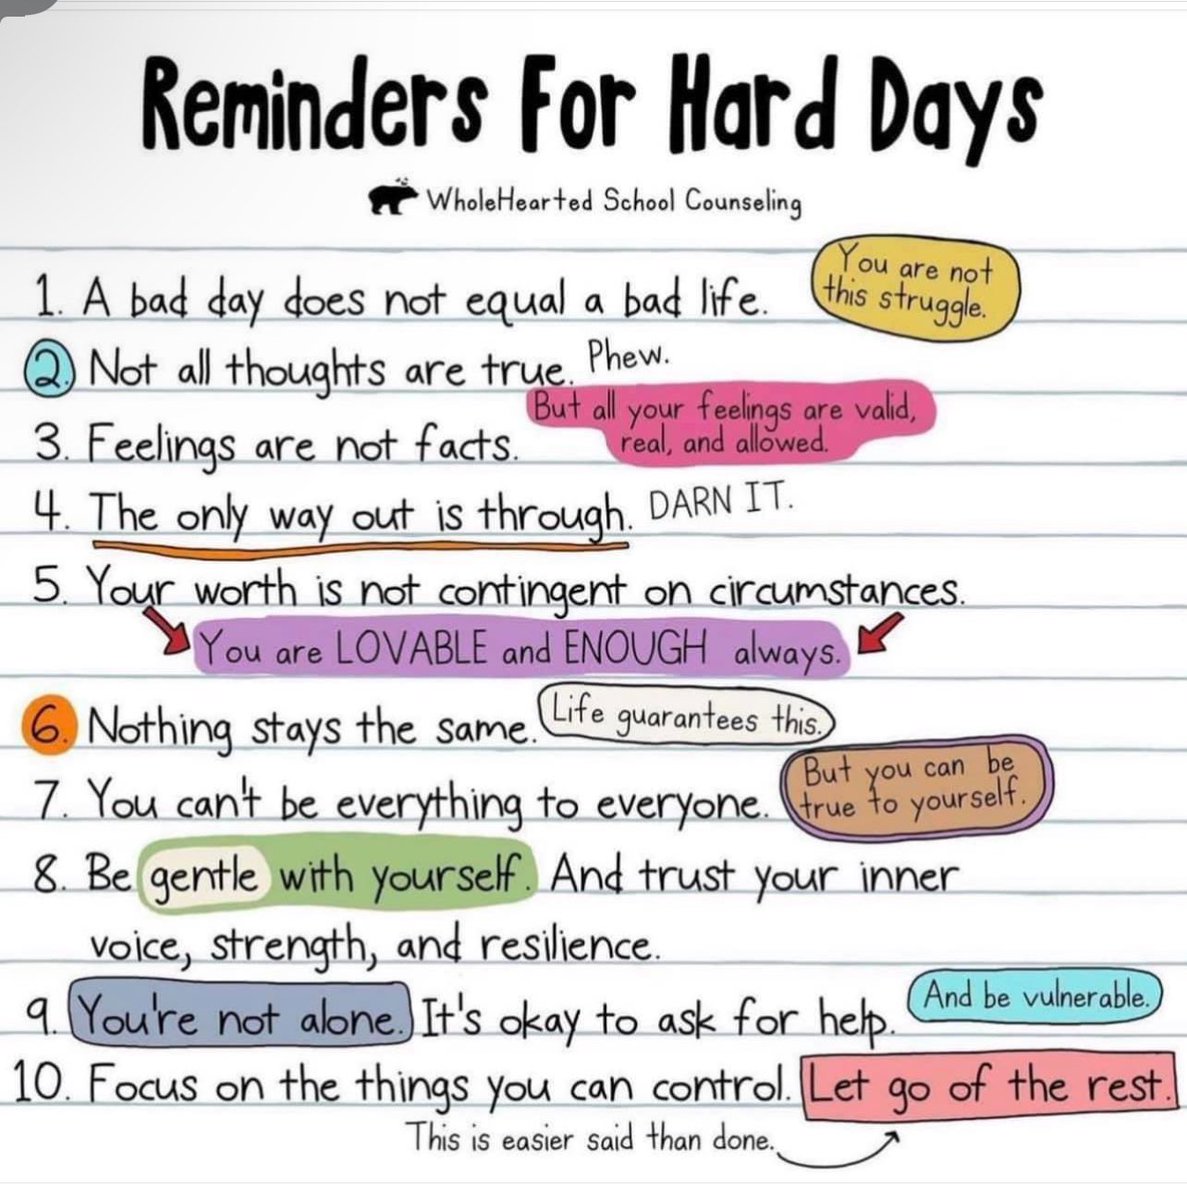 Reminders For Hard Days
WholeHearted School Counseling
1. A bad day does not equal a bad life.
You are not
this struggle.
2. Not all thoughts are true. Phew.
But all your feelings are valid,
real, and allowed.
3. Feelings are not facts.
4. The only way out is through. DARN IT.
5. Your worth is not contingent on circumstances.
You are LOVABLE and ENOUGH always.
6. Nothing stays the same. Life guarantees this.
7. You can't be everything to everyone.
But you can be
true to yourself.
8. Be gentle with yourself. And trust your inner
voice, strength, and resilience.
9. You're not alone. It's okay to ask for help. And be vulnerable.
10. Focus on the things you can control. Let go of the rest.
This is easier said than done.